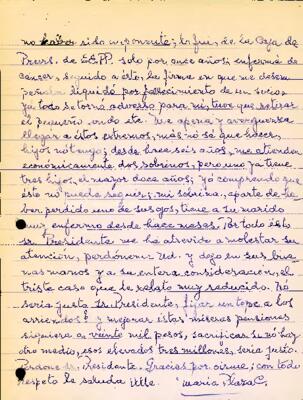 no había sido imponente; lo fui, de la Caja de
Prevs. de EE.PP. solo por once años; enfermé de
cáncer, seguido a ésto, la firma en que me desem
peñaba liquidó por fallecimiento de un socio,
ya todo se tornó adverso para mí, tuve que retirar
el pequeño ,  etc. Me apena y avergüenza
llegar a éstos extremos, más nó sé que hacer,
hijos nó tengo; desde hace seis años, me atienden
económicamente dos sobrinos, pero uno ya tiene
tres hijos, el mayor doce años; yó comprendo que
ésto nó pueda seguir; mi sobrina, aparte de ha
ber perdido uno de sus ojos, tiene a su marido
muy enfermo desde hace meses. Por todo ésto
Sr. Presidente me hé atrevido a molestar su
atención, perdóneme Ud. y dejo en sus bue
nas manos y a su entera consideracion, el
triste caso que le relato muy reducido. Nó
sería justo Sr. Presidente, fijar un tope a los
arriendos? y mejorar éstas míseras pensiones
siquiera a veinte mil pesos, sacrificar si nó hay
otro medio, esos elevados tres millones, sería justo.
Perdone Sr. Presidente. Gracias por oirme; con todo
respeto le saluda Atte. Maria Plaza C.